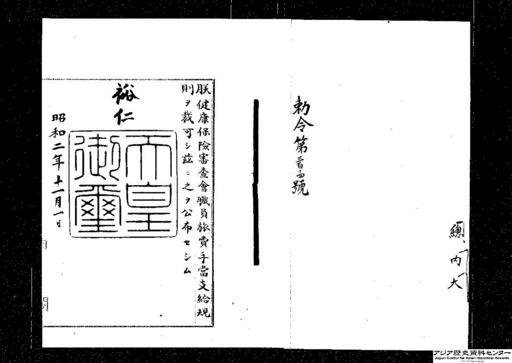 勅令第
號
總、内大
朕健康保險審査會職員旅費手當支給規
則ヲ裁可シ茲ニ之ヲ公布セシム
裕仁
天皇
御璽
昭和二年十一月一日
アジア歴史資料センター
Japan Center for Asian Historical Records